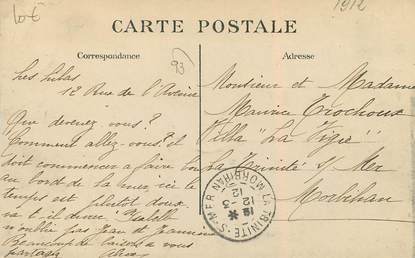 1912
lot
CARTE POSTALE
93
Correspondance
Adresse
Les Lilas
12 Rue de l'Avenir
Que devenez vous?
Comment allez-vous? il
doit commencer à faire bon
au bord de la mer, ici le
temps est plutôt doux.
va t-il durer?
n'oublie pas Jean et
Beaucoup de baisers à vous
partager
Monsieur et Madame
Maurice Trochoux
Villa "La Vigie"
La Trinité s/ Mer
Morbihan
LA TRINITÉ-S-MER MORBIHAN
12-3
12